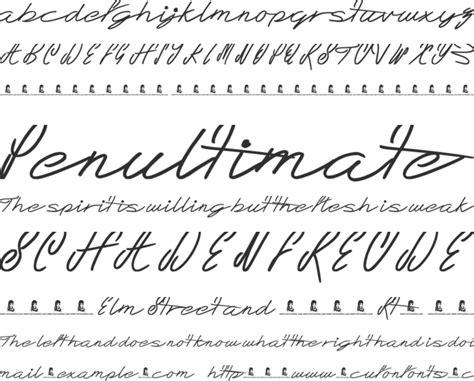 abcdefghijklmnopqrstuvwxyz
ABCDEFGHIJKLMNOPQRSTUVWXYZ
Penultimate
The spirit is willing but the flesh is weak
SCHADENFREUDE
Elm Street and Rt
The left hand does not know what the right hand is doin
mail example.com http www.cufonfonts